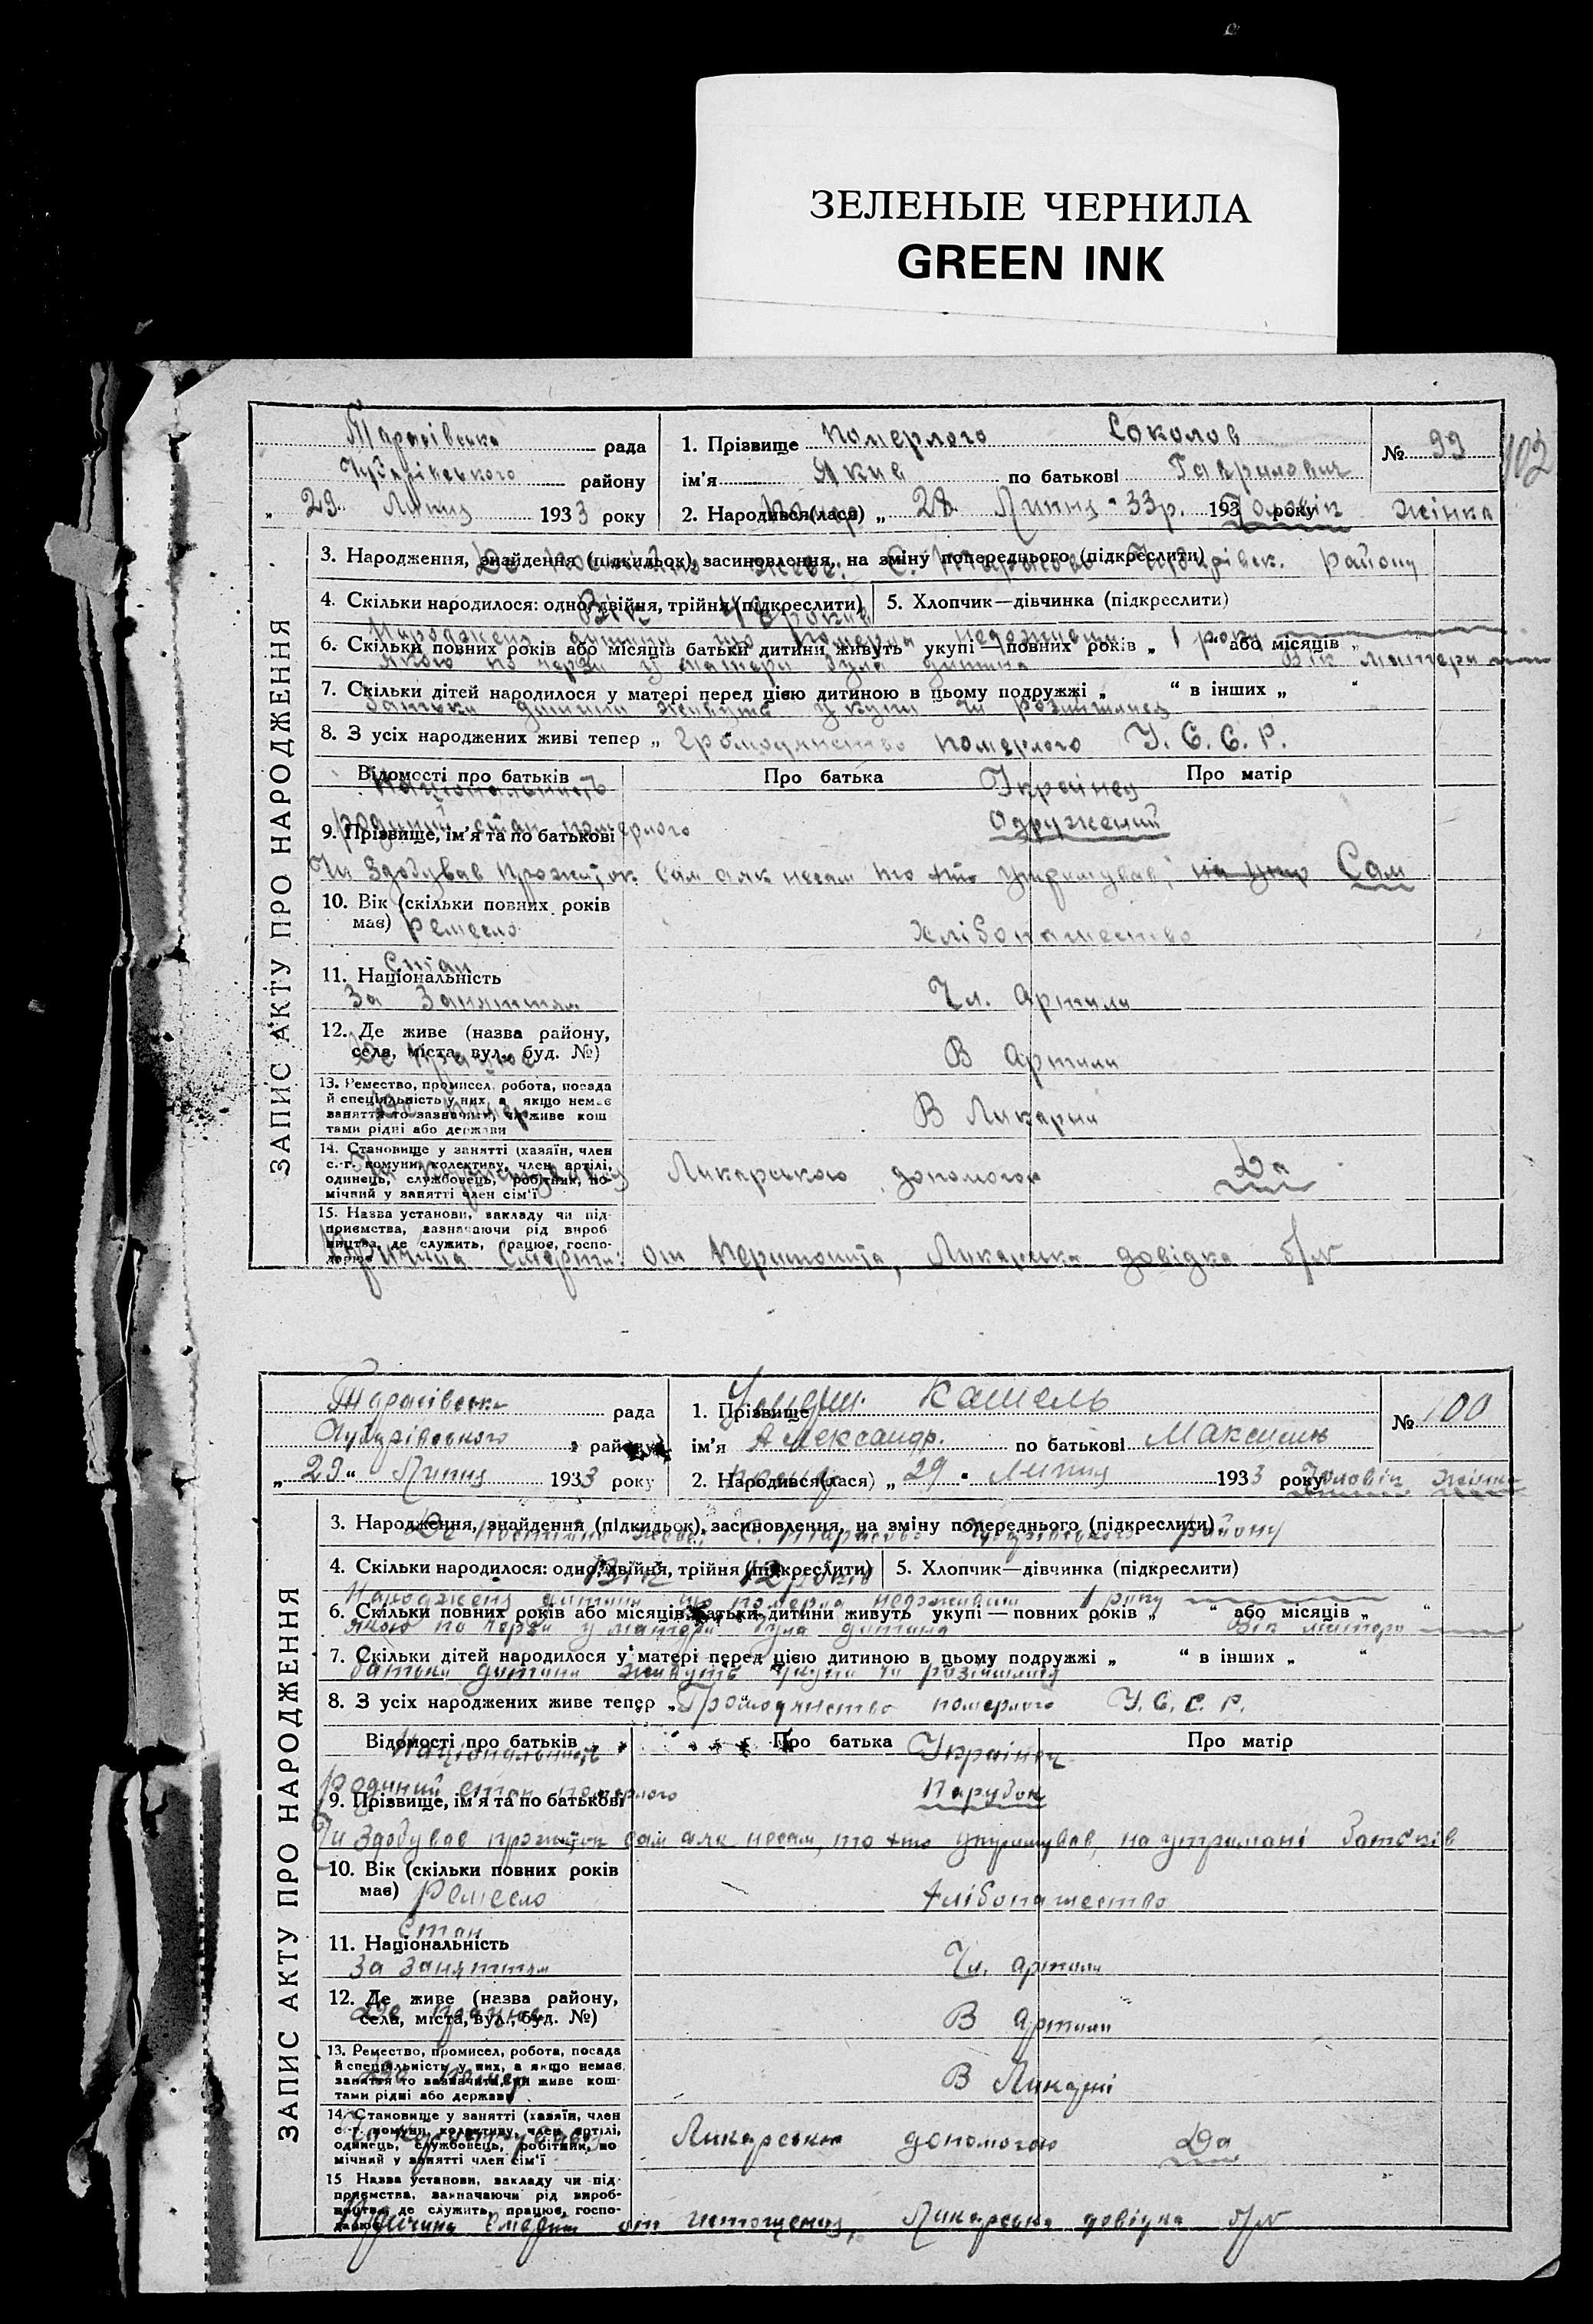 ЗЕЛЕНЫЕ ЧЕРНИЛА
GREEN INK
Тарасівська рада
району
„ 29 Липня 1933 року
1. Прізвище померлого Соколов
ім’я Якив по батькові Гаврилович
2. Народився(лася) „ 28 Липня - 33р. 193 року жінка
№ 99
102
ЗАПИС АКТУ ПРО НАРОДЖЕННЯ
3. Народження, знайдення (підкидьок), засиновлення, на зміну попереднього (підкреслити) району
4. Скільки народилося: одно, двійня, трійня (підкреслити) 5. Хлопчик—дівчинка (підкреслити)
Вік 48 років
Народжена дитина що померла недоживши 1 року
6. Скільки повних років або місяців батьки дитини живуть укупі — повних років „ “ або місяців „
якою по черзи у матери була дитина Вік матери
7. Скільки дітей народилося у матері перед цією дитиною в цьому подружжі „ “ в інших „ “
батьки дитини живуть укупи чи розийшлись
8. З усіх народжених живі тепер „ Громодянство померлого У. С. С. Р.
Відомості про батьків Про батька Про матір
Національність Українец
родиний стан померлого Одружений
9. Прізвище, ім’я та по батькові
Чи здобував прожиток сам а як несам то хто утримував; на утр Сам
10. Вік (скільки повних років має)
Ремесло Хлібопашество
Стан
11. Національність
За Заняттям Чл. Артили
12. Де живе (назва району, села, міста, вул., буд. №)
Де працює В Артили
13. Ремество, промисел, робота, посада й спеціяльність у них, а якщо немає заняття то зазначити, чи живе коштами рідні або держави
Де помер В Ликарни
14. Становище у занятті (хазяїн, член с.-г. комуни, колективу, член артілі, одинець, службовець, робітник, помічний у занятті член сім’ї
Ликарською допомогою Да
15. Назва установи, закладу чи підприємства, зазначаючи рід виробництва, де служить, працює, господарює
Причина Смерти: от Перитонита, Ликарська довідка б/№
Тарасівська рада
району
„ 29 “ Липня 1933 року
1. Прізвище Кашель
ім’я Александр. по батькові Максимів
2. Народився(лася) „ 29 “ Липня 1933 року Чоловік жінка
№ 100
ЗАПИС АКТУ ПРО НАРОДЖЕННЯ
3. Народження, знайдення (підкидьок), засиновлення, на зміну попереднього (підкреслити) району
4. Скільки народилося: одно, двійня, трійня (підкреслити) 5. Хлопчик—дівчинка (підкреслити)
Вік 12 років
Народжена дитина що померла недоживши 1 року
6. Скільки повних років або місяців батьки дитини живуть укупі — повних років „ “ або місяців „ “
якою по черзи у матери була дитина Вік матери
7. Скільки дітей народилося у матері перед цією дитиною в цьому подружжі „ “ в інших „ “
батьки дитини живуть укупи чи розійшлись
8. З усіх народжених живе тепер „ Громодянство померлого У. С. С. Р.
Відомості про батьків Про батька Про матір
Національність Українец
Родиний стан померлого Парубок
9. Прізвище, ім’я та по батькові
Чи здобував прожиток сам а як несам, то хто утримував, на утримані Батьків
10. Вік (скільки повних років має)
Ремесло Хлібопашество
Стан
11. Національність
За Заняттям Чл. Артили
12. Де живе (назва району, села, міста, вул., буд. №)
Де працює В Артили
13. Ремество, промисел, робота, посада й спеціяльність у них, а якщо немає заняття то зазначити, чи живе коштами рідні або держави
Де помер В Ликарні
14. Становище у занятті (хазяїн, член с.-г. комуни, колективу, член артілі, одинець, службовець, робітник, помічний у занятті член сім’ї
Ликарською допомогою Да
15 Назва установи, закладу чи підприємства, зазначаючи рід виробництва, де служить, працює, господарює
Причина Смерти от истощения, Ликарська довідка б/№